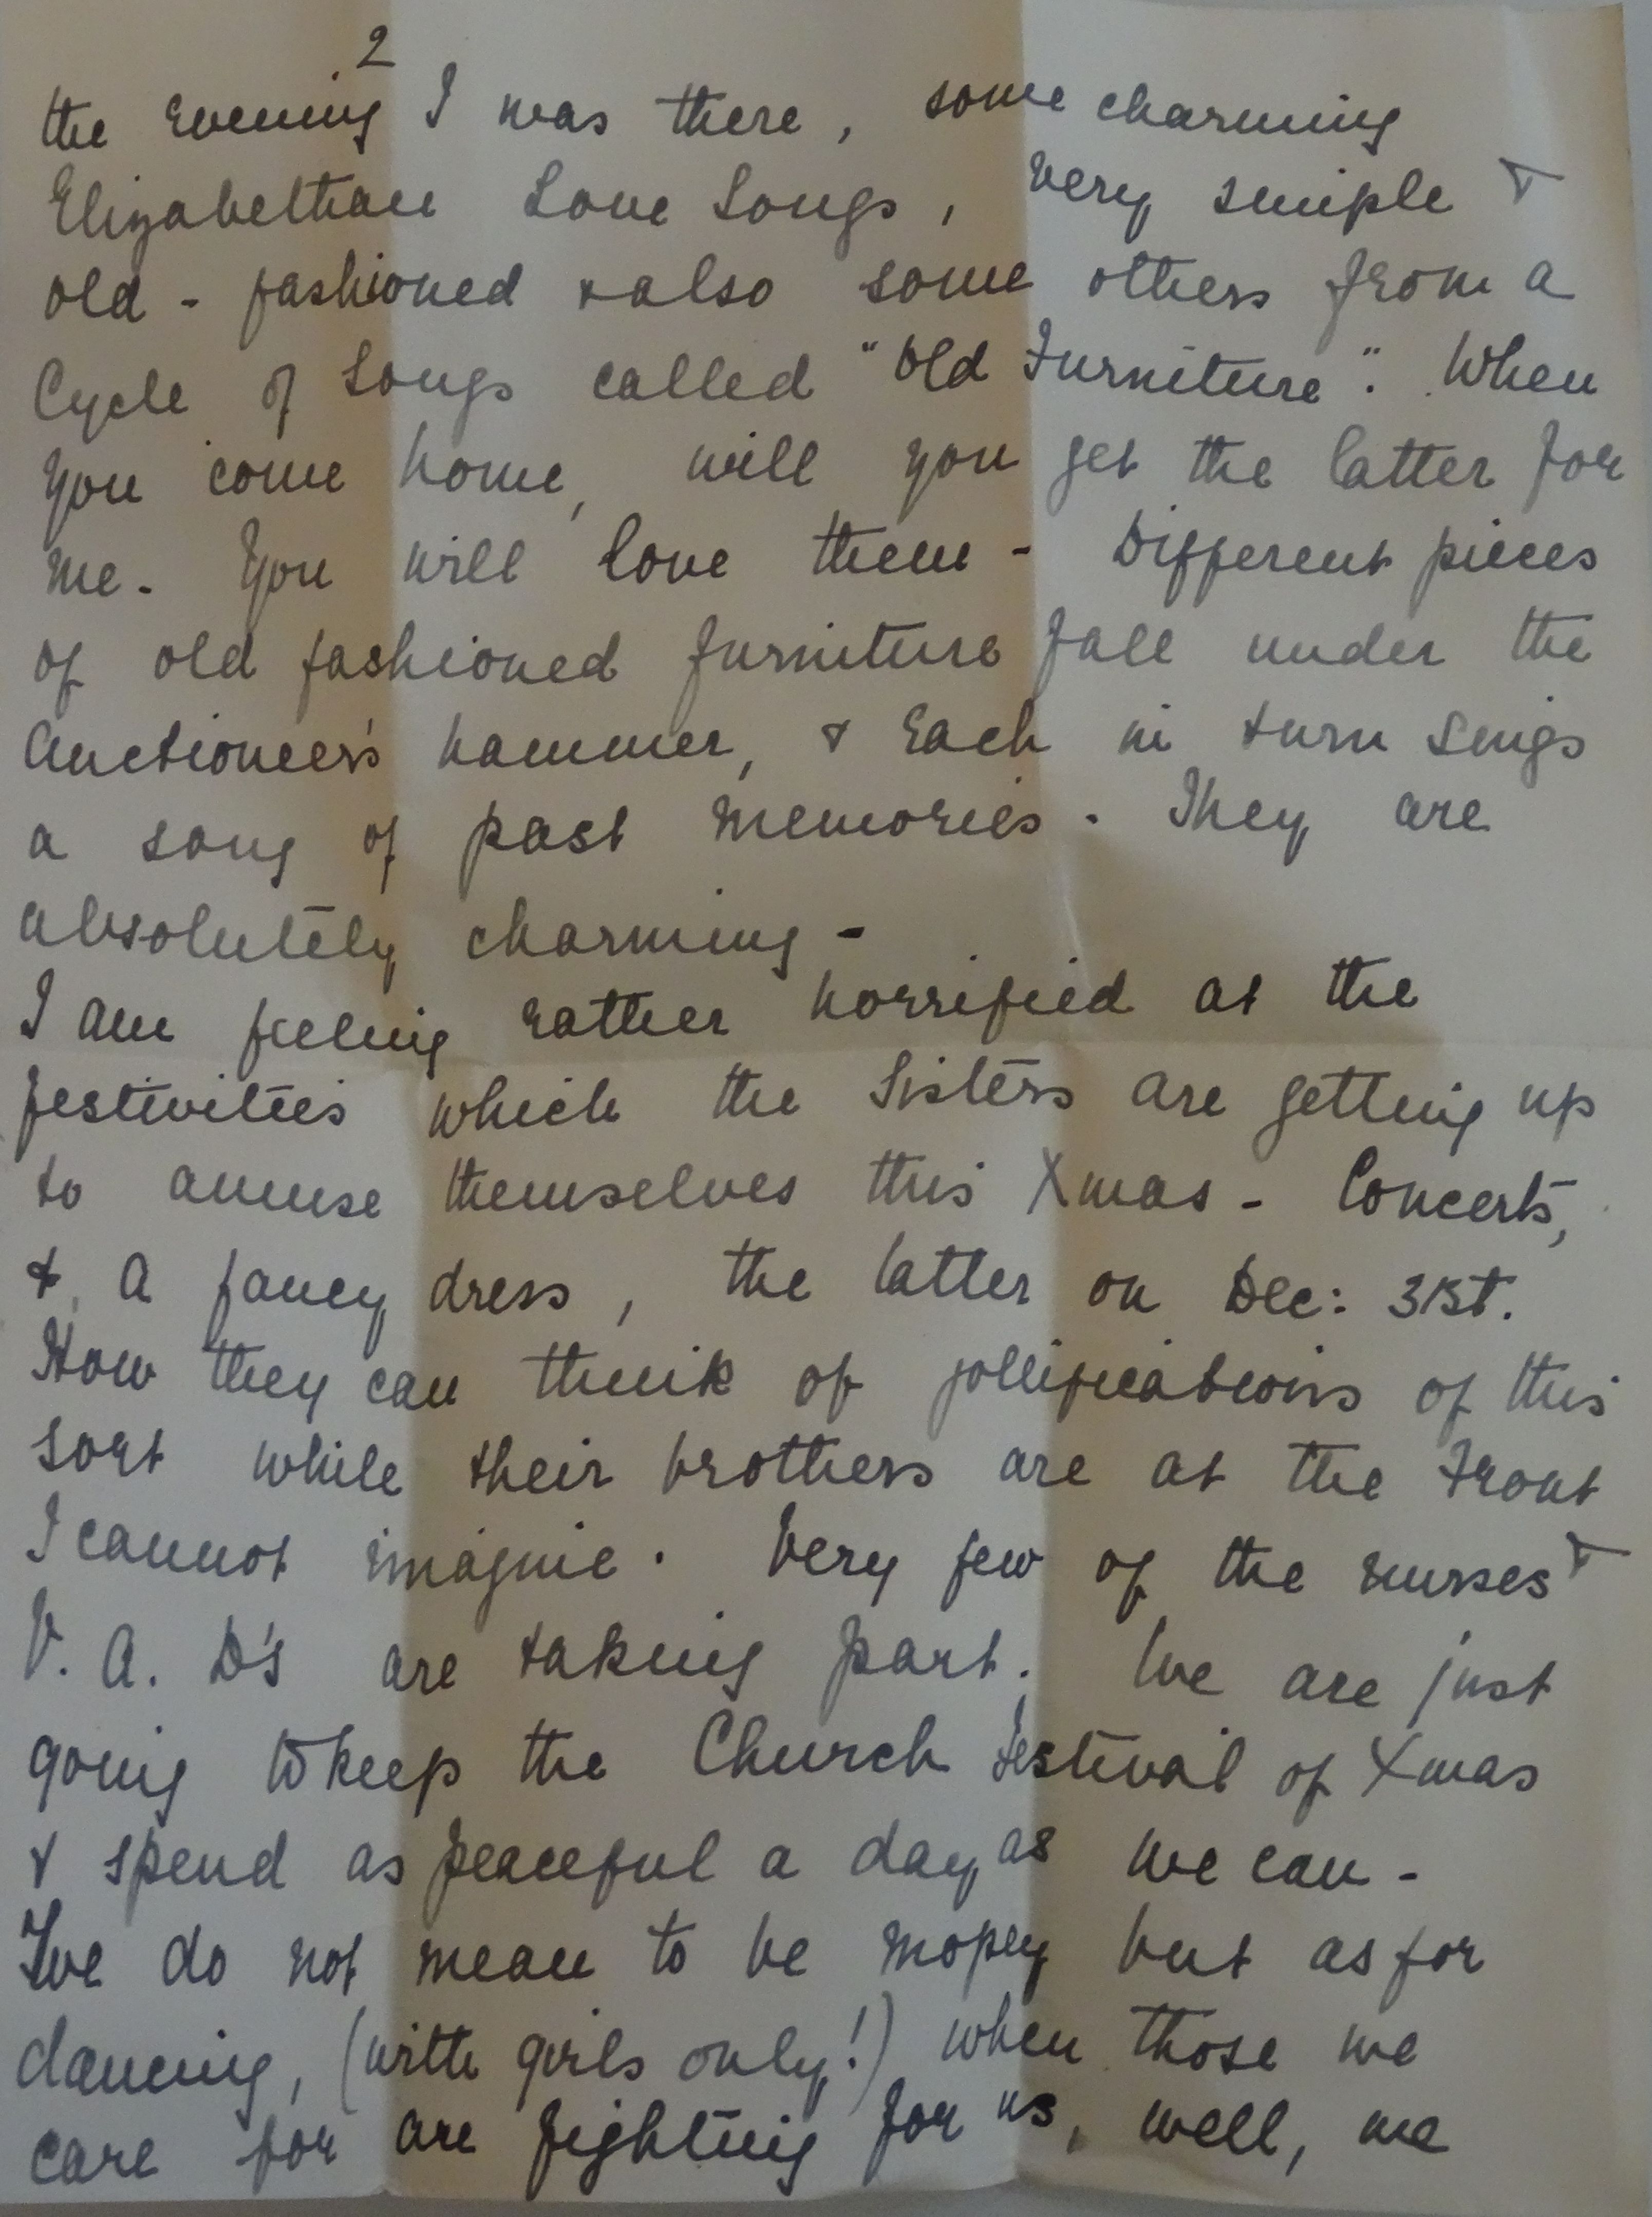 2
the evening I was there, some charming
Elizabethan Love Songs, very simple &
old-fashioned & also some others from a
Cycle of Songs called "Old Furniture". When
you come home, will you get the latter for
me. You will love them - Different pieces
of old fashioned furniture fall under the
Auctioneer's hammer, & each in turn sings
a song of past memories. They are
absolutely charming -
I am feeling rather horrified at the
festivities which the Sisters are getting up
to amuse themselves this Xmas - Concerts,
& a fancy dress, the latter on Dec: 31st.
How they can think of jollifications of this
sort while their brothers are at the Front
I cannot imagine. Very few of the nurses &
V.A.D's are taking part. We are just
going to keep the Church Festival of Xmas
& spend as peaceful a day as we can -
We do not mean to be mopey but as for
dancing, (with girls only!) when those we
care for are fighting for us, well, we